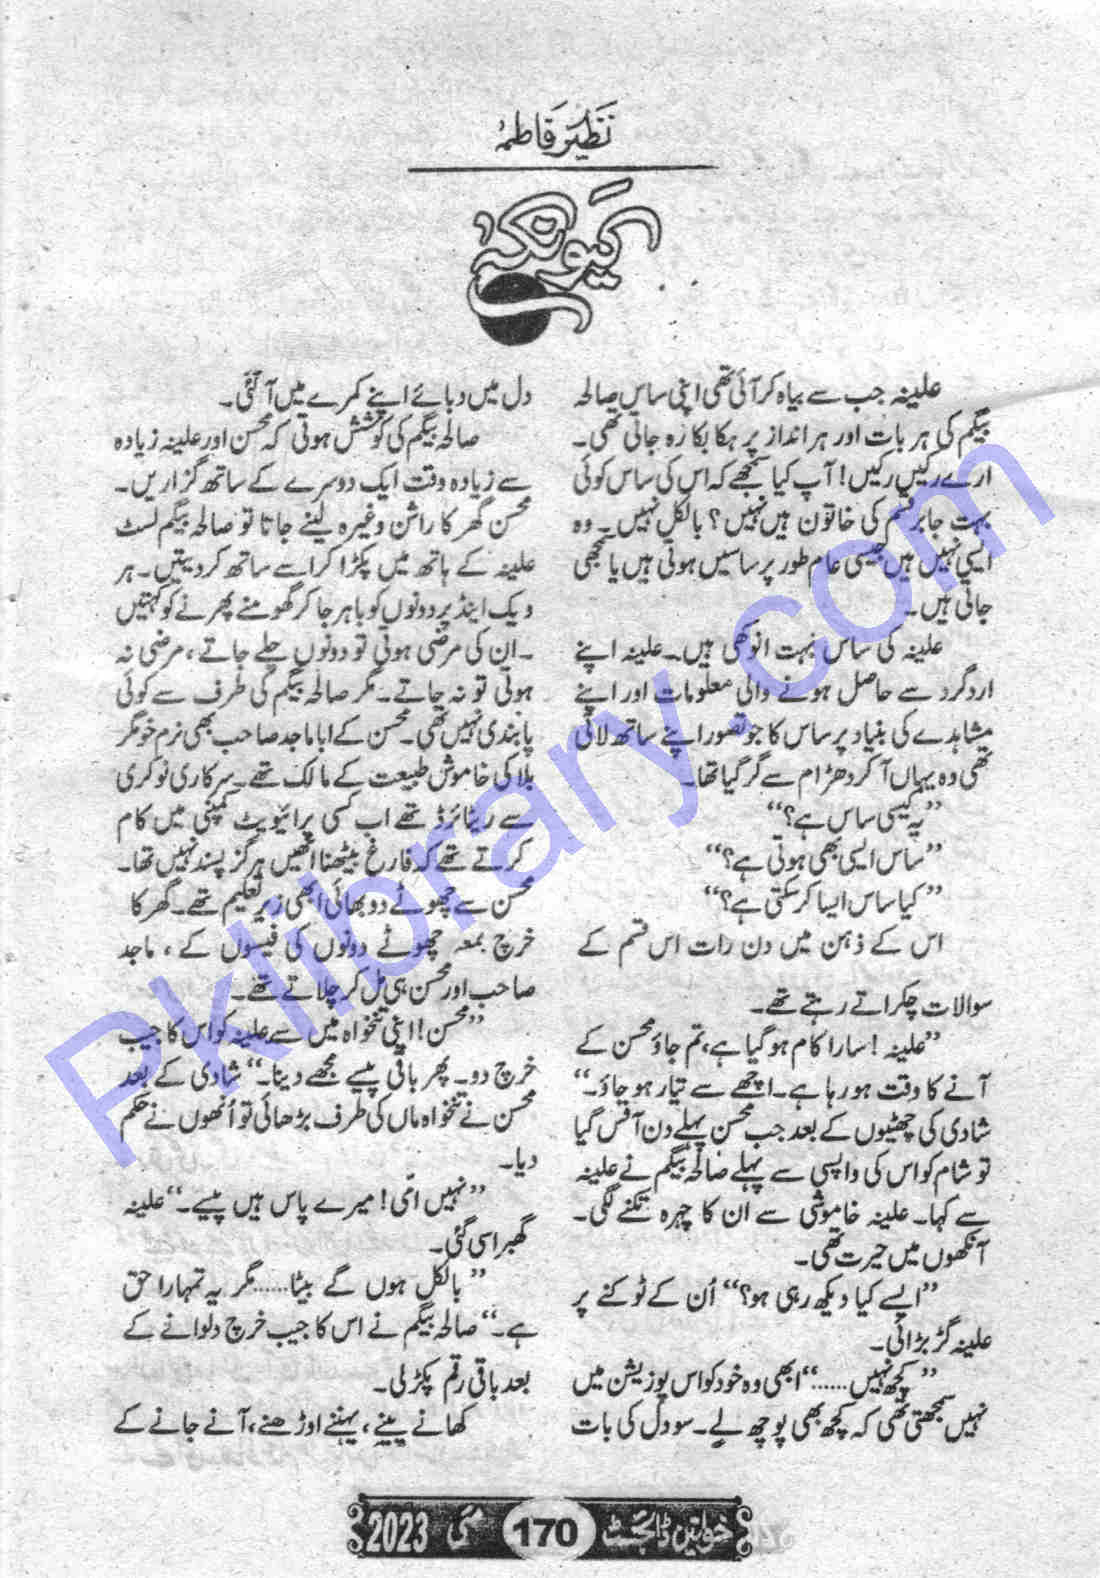 نظیر فاطمہ
کیونکہ
علینہ جب سے بیاہ کر آئی تھی اپنی ساس صالحہ
بیگم کی ہر بات اور ہر انداز پر ہکا بکا رہ جاتی تھی۔
ارے رکیں رکیں! آپ کیا سمجھے کہ اس کی ساس کوئی
بہت جابر قسم کی خاتون ہیں نہیں؟ بالکل نہیں۔ وہ
ایسی نہیں ہیں جیسی عام طور پر ساسیں ہوتی ہیں یا سمجھی
جاتی ہیں۔
علینہ کی ساس بہت انوکھی ہیں۔ علینہ اپنے
ارد گرد سے حاصل ہونے والی معلومات اور اپنے
مشاہدے کی بنیاد پر ساس کا جو تصور اپنے ساتھ لائی
تھی وہ یہاں آ کر دھڑام سے گر گیا تھا۔
”یہ کیسی ساس ہے؟“
”ساس ایسی بھی ہوتی ہے؟“
”کیا ساس ایسا کر سکتی ہے؟“
اس کے ذہن میں دن رات اس قسم کے
سوالات چکراتے رہتے تھے۔
”علینہ! سارا کام ہو گیا ہے، تم جاؤ محسن کے
آنے کا وقت ہو رہا ہے۔ اچھے سے تیار ہو جاؤ۔“
شادی کی چھٹیوں کے بعد جب محسن پہلے دن آفس گیا
تو شام کو اس کی واپسی سے پہلے صالحہ بیگم نے علینہ
سے کہا۔ علینہ خاموشی سے ان کا چہرہ تکنے لگی۔
آنکھوں میں حیرت تھی۔
”ایسے کیا دیکھ رہی ہو؟“ اُن کے ٹوکنے پر
علینہ گڑبڑائی۔
”کچھ نہیں......“ ابھی وہ خود کو اس پوزیشن میں
نہیں سمجھتی تھی کہ کچھ بھی پوچھ لے۔ سو دل کی بات
دل میں دبائے اپنے کمرے میں آ گئی۔
صالحہ بیگم کی کوشش ہوتی کہ محسن اور علینہ زیادہ
سے زیادہ وقت ایک دوسرے کے ساتھ گزاریں۔
محسن گھر کا راشن وغیرہ لینے جاتا تو صالحہ بیگم لسٹ
علینہ کے ہاتھ میں پکڑا کر اسے ساتھ کر دیتیں۔ ہر
ویک اینڈ پر دونوں کو باہر جا کر گھومنے پھرنے کو کہتیں
۔ان کی مرضی ہوتی تو دونوں چلے جاتے، مرضی نہ
ہوتی تو نہ جاتے۔ مگر صالحہ بیگم کی طرف سے کوئی
پابندی نہیں تھی۔ محسن کے ابا ماجد صاحب بھی نرم خو مگر
بلا کی خاموش طبیعت کے مالک تھے۔ سرکاری نوکری
سے ریٹائرڈ تھے اب کسی پرائیویٹ کمپنی میں کام
کرتے تھے کہ فارغ بیٹھنا انھیں ہرگز پسند نہیں تھا۔
محسن سے چھوٹے دو بھائی ابھی زیرِ تعلیم تھے۔ گھر کا
خرچ بمعہ چھوٹے دونوں کی فیسوں کے، ماجد
صاحب اور محسن ہی مل کر چلاتے تھے۔
”محسن! اپنی تنخواہ میں سے علینہ کو اس کا جیب
خرچ دو۔ پھر باقی پیسے مجھے دینا۔“ شادی کے بعد
محسن نے تنخواہ ماں کی طرف بڑھائی تو اُنھوں نے حکم
دیا۔
”نہیں امّی! میرے پاس ہیں پیسے۔“ علینہ
گھبرا سی گئی۔
”بالکل ہوں گے بیٹا......مگر یہ تمہارا حق
ہے۔“ صالحہ بیگم نے اس کا جیب خرچ دلوانے کے
بعد باقی رقم پکڑ لی۔
کھانے پینے، پہننے اوڑھنے، آنے جانے کے
خواتین ڈائجسٹ 170 مئی 2023
Pklibrary.com